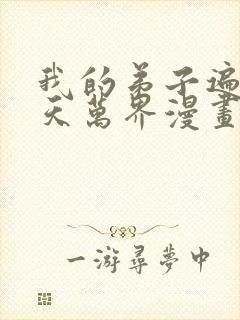 我的弟子遍
天萬界漫畫
一游尋夢中